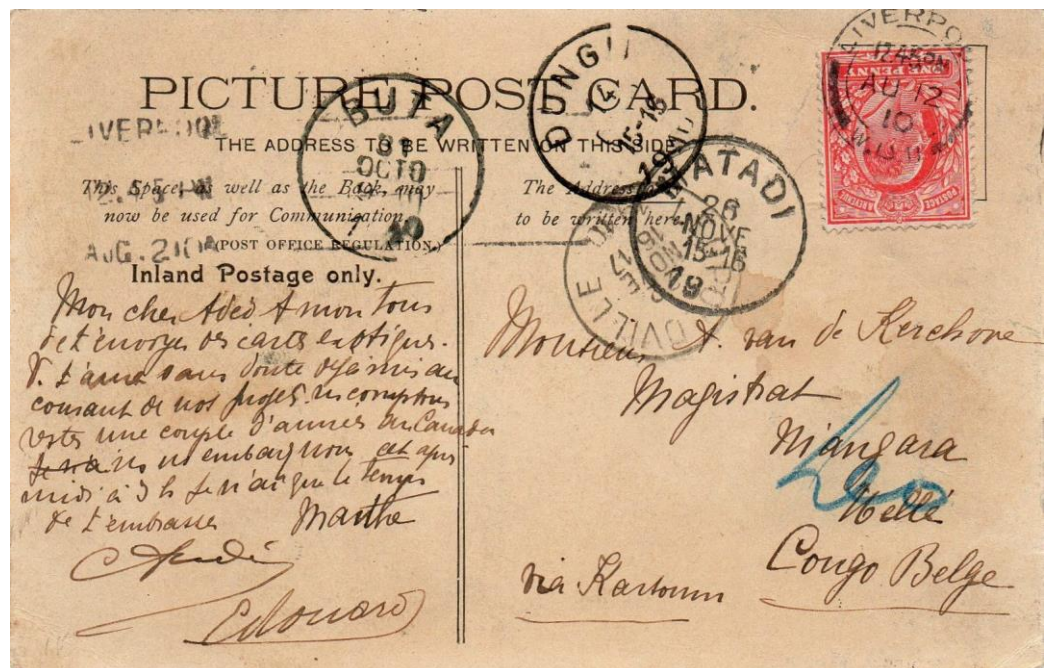 PICTURE POST CARD.
THE ADDRESS TO BE WRITTEN ON THIS SIDE.
This Space, as well as the Back, may
now be used for Communication.
(POST OFFICE REGULATION.)
Inland Postage only.
The Address to
be written here.
LIVERPOOL
12.45 PM
AUG. 12 10
BUTA
OCTO
DUNGU
14
15-16
19
MATADI
26
NOVE
15-16
19
LIVERPOOL
12.45PM
AU 12
10
ONE PENNY
POSTAGE
Mon cher
A mon tour
de t'envoyer des cartes exotiques.
V. t'aura sans doute déjà mis au
courant de nos projets. ns comptons
rester une couple d'années au Canada
ns ns embarquons cet après
midi à 3 h je n'ai que le temps
de t'embrasser Marthe
Edouard
Monsieur A. van de Kerchove
Magistrat
Niangara
Uellé
Congo Belge
via Kartoum
Leo